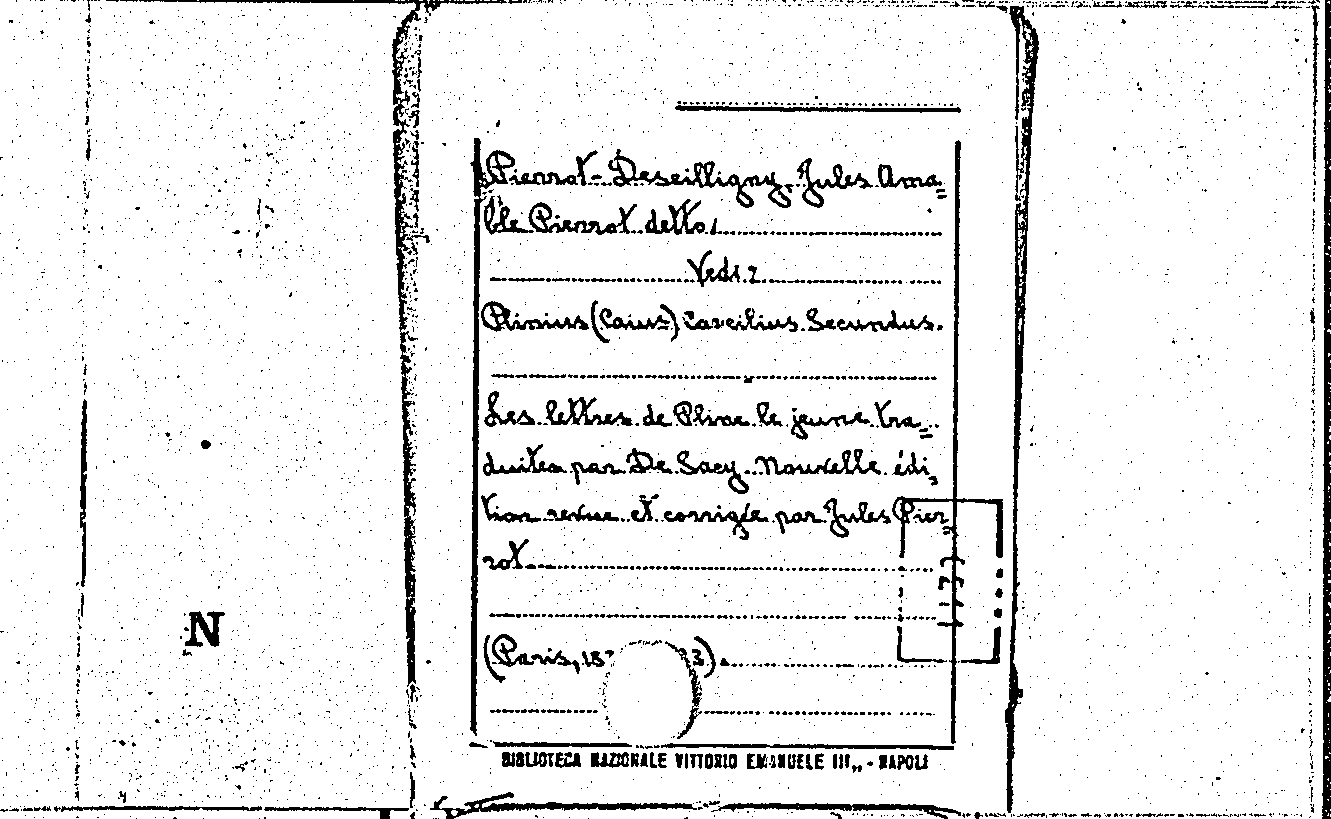 Pierrot-Deseilligny, Jules Ama=
ble Pierrot detto,
Vedi:
Plinius (Caius) Caecilius Secundus.
Les lettres de Pline le jeune tra=
duites par De Sacy. Nouvelle édi=
tion revue et corrigée par Jules Pier=
rot.
(Paris, 18 33).
N
BIBLIOTECA NAZIONALE VITTORIO EMANUELE III,, - NAPOLI